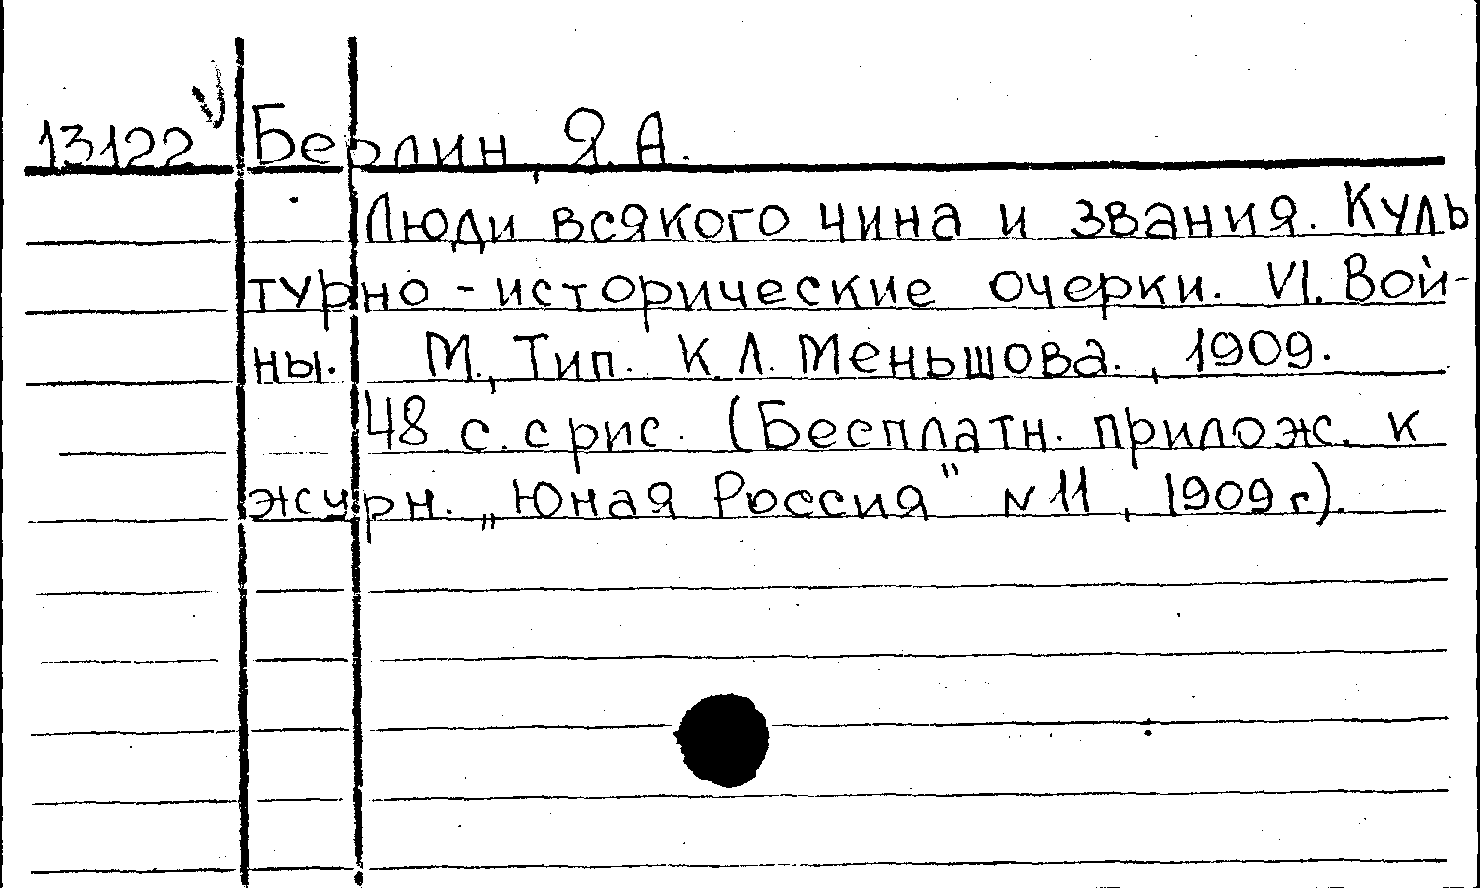 13122 Берлин, Я. А.
Люди всякого чина и звания. Куль
турно-исторические очерки. VI. Вой-
ны. М., Тип. К. Л. Меньшова., 1909.
48 с. с рис. (Бесплатн. прилож. к
журн. „Юная Россия" N 11, 1909 г.).